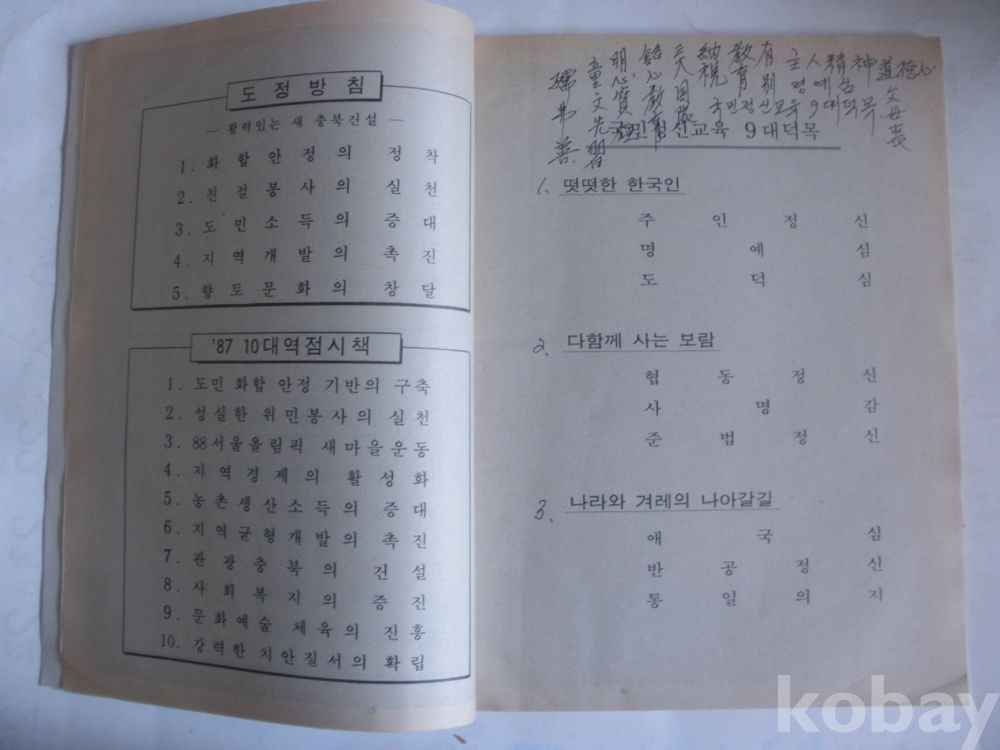 도정방침
— 활력있는 새 충북건설 —
1. 화합안정의 정착
2. 친절봉사의 실천
3. 도민소득의 증대
4. 지역개발의 촉진
5. 향토문화의 창달
'87 10대역점시책
1. 도민 화합 안정 기반의 구축
2. 성실한 위민봉사의 실천
3. 88서울올림픽 새마을운동
4. 지역경제의 활성화
5. 농촌생산소득의 증대
6. 지역균형개발의 촉진
7. 관광충북의 건설
8. 사회복지의 증진
9. 문화예술 체육의 진흥
10. 강력한 치안질서의 확립
主人精神 道德心
명예심
국민정신교육 9대덕목
국민정신교육 9대덕목
1. 떳떳한 한국인
주인정신
명예심
도덕심
2. 다함께 사는 보람
협동정신
사명감
준법정신
3. 나라와 겨레의 나아갈길
애국심
반공정신
통일의지
kobay